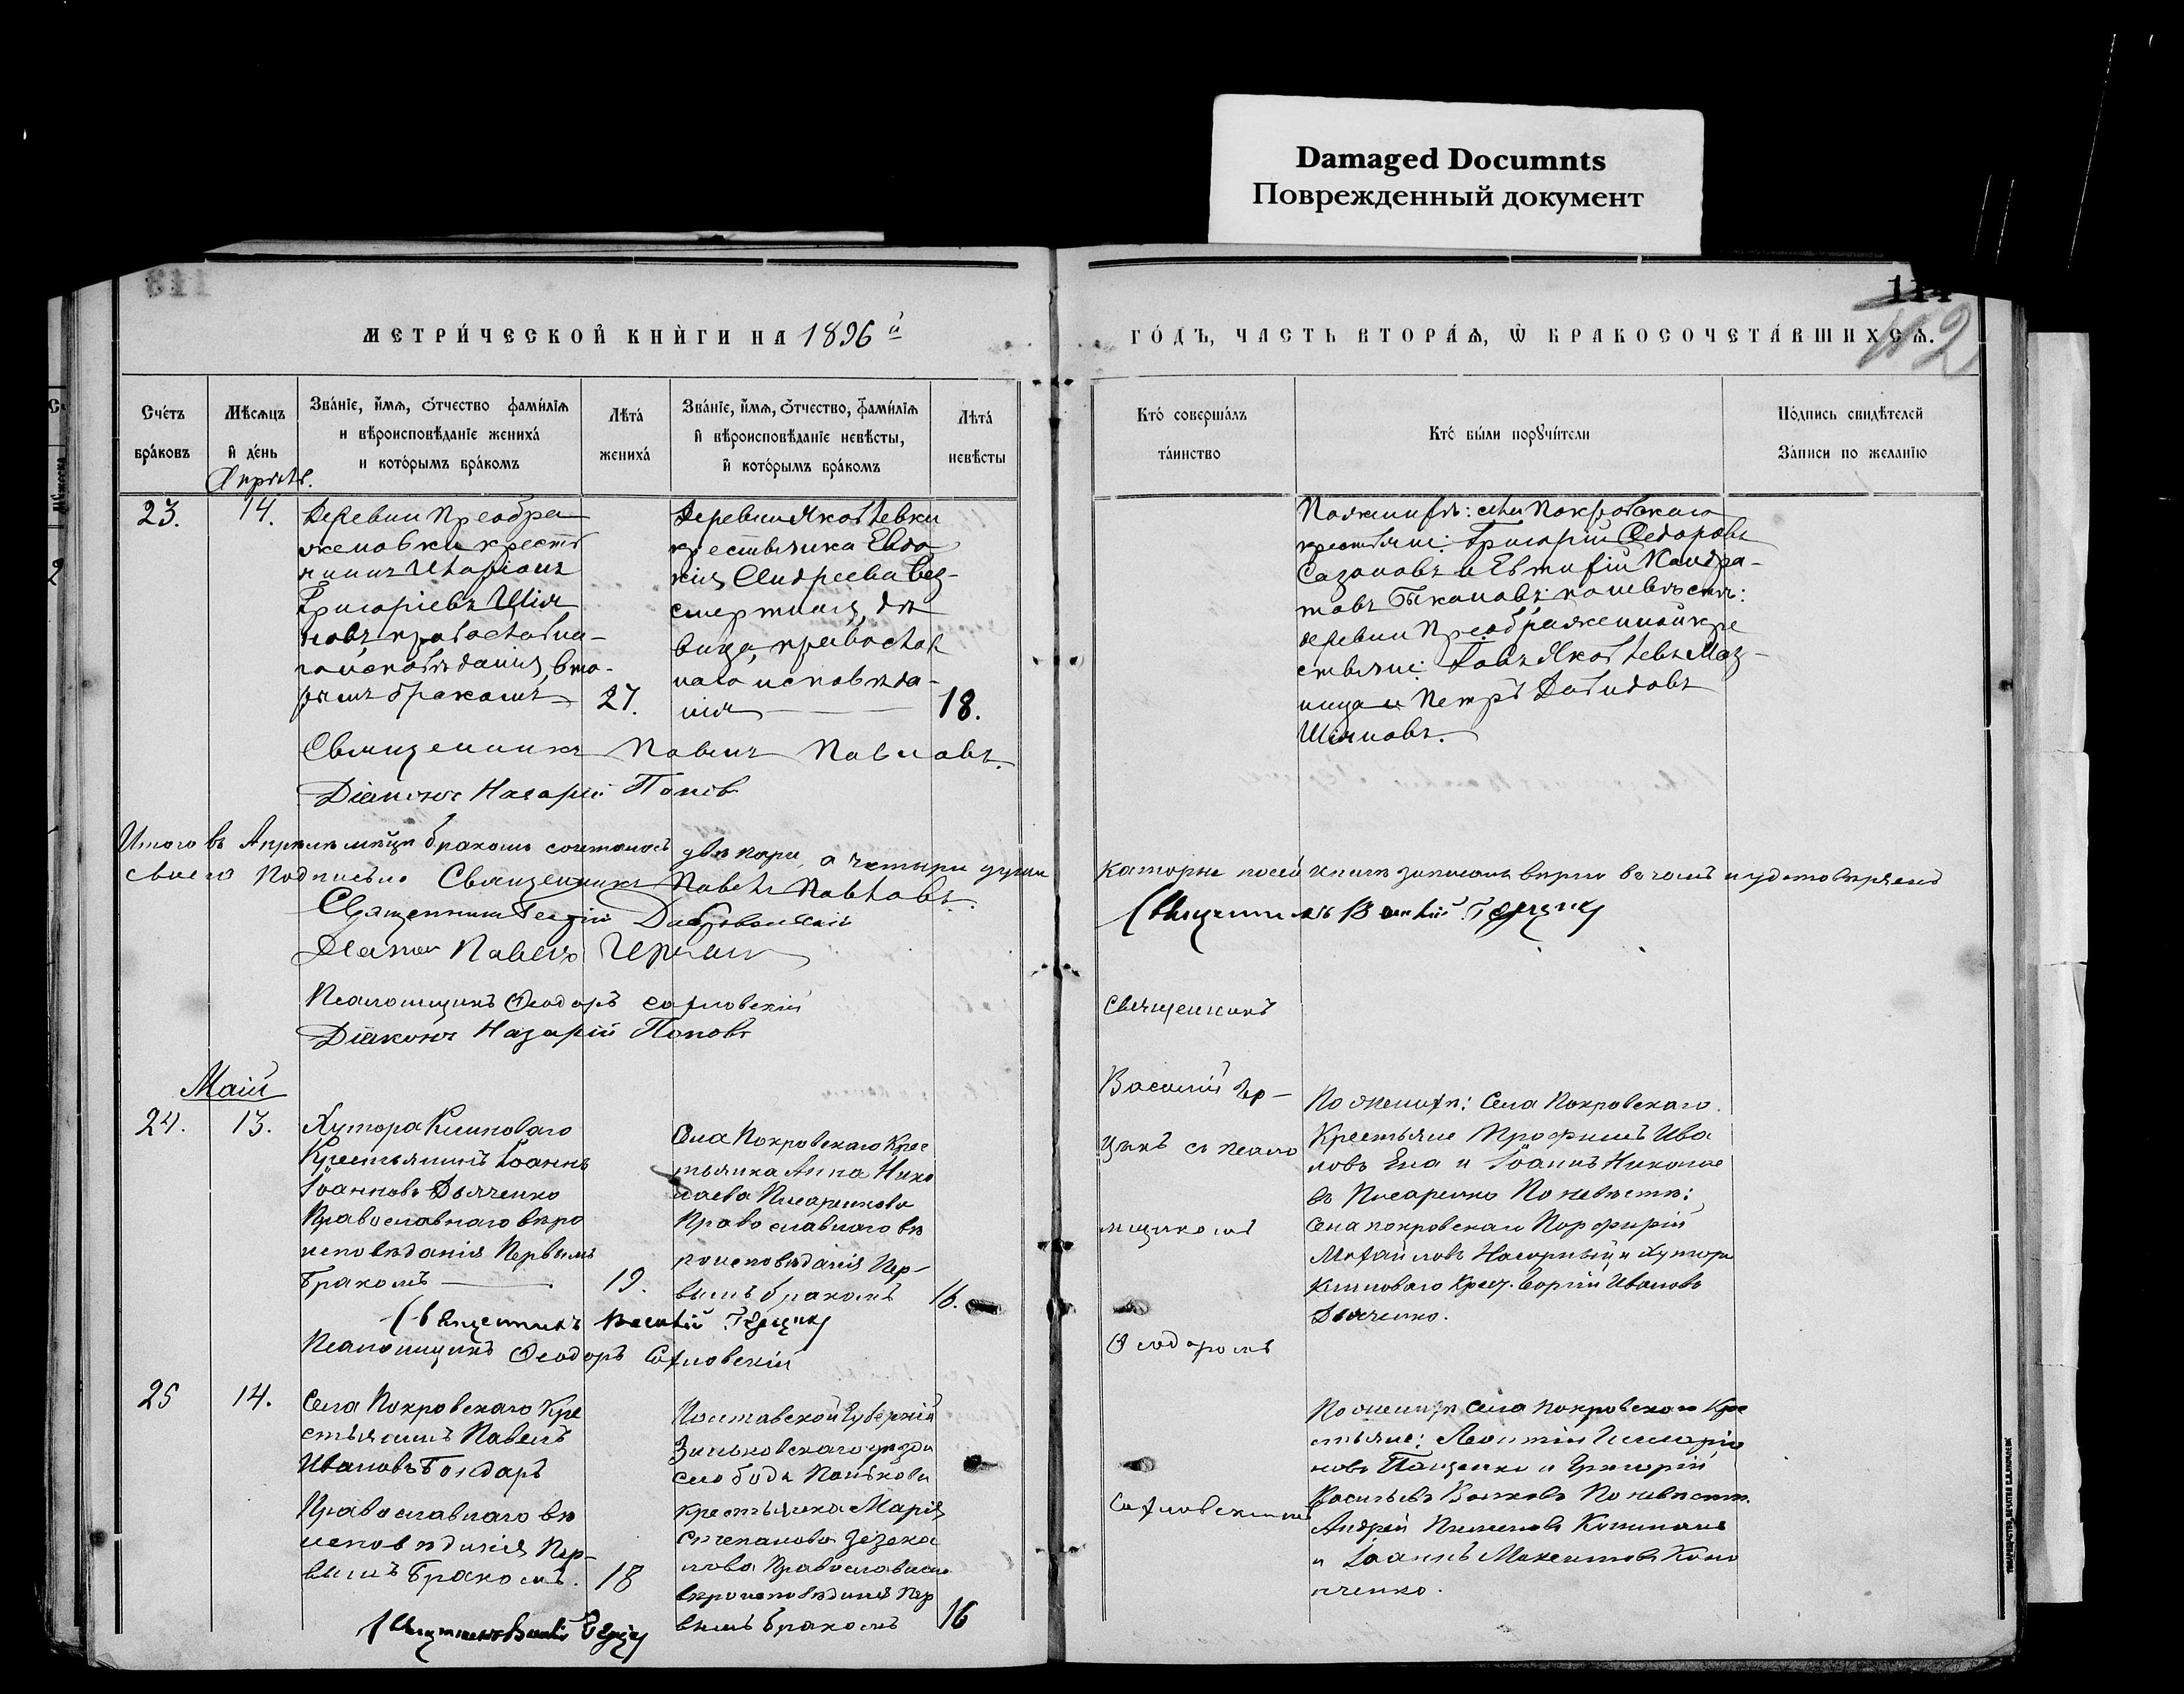 Damaged Documnts
Поврежденный документ
114
112
МЕТРИЧЕСКОЙ КНИГИ НА 1896й
ГОДЪ, ЧАСТЬ ВТОРАЯ, Ѡ БРАКОСОЧЕТАВШИХСЯ.
Счетъ браковъ
Мѣсяцъ и день
Званіе, имя, отчество фамилія и вѣроисповѣданіе жениха и которымъ бракомъ
Лѣта жениха
Званіе, имя, отчество, фамилія и вѣроисповѣданіе невѣсты, и которымъ бракомъ
Лѣта невѣсты
Кто совершалъ таинство
Кто были поручители
Подпись свидѣтелей записи по желанію
Апрѣль.
23.
14.
Деревни Преобра-
женовки крестья
нинъ Иларіонъ
Григоріевъ Шия
новъ, православна-
го исповѣданія, вто-
рымъ бракомъ
27.
Деревни Яковлевки
крестьянка Евдо
кія Андреева Без-
смертная, дѣ
вица, православ
наго исповѣда-
нія
18.
По женихѣ: села Покровскаго
крестьяне: Григорій Федоровъ
Сазоновъ и Евтифій Кондра-
товъ Быкановъ; по невѣстѣ:
деревни Преображенной кре
стьяне: Яковлевъ Маз-
ница и Петръ Давидовъ
Шияновъ.
Священникъ Павелъ Павловъ.
Діаконъ Назарій Поповъ
Итого въ Апрѣлѣ мѣсцѣ бракомъ сочеталось двѣ пары, а четыри души
которые по сей книгѣ записаны вѣрно въ чемъ и удостовѣряемъ
своею подписью Священникъ Павелъ Павловъ.
Священникъ
Павелъ
Псаломщикъ Ѳеодоръ Сахновскій
Діаконъ Назарій Поповъ
Маій
24.
13.
Хутора Климоваго
Крестьянинъ Іоаннъ
Іоанновъ Дьяченко
Православнаго вѣро
исповѣданія Первымъ
бракомъ
19.
Села Покровскаго Крес
тьянка Анна Нико
лаева Писаренкова
Православнаго вѣ
роисповѣданія Пер-
вымъ бракомъ
16.
Священникъ
Василій Гер-
цыкъ съ псало
мщикомъ
Ѳеодоромъ
Сахновскимъ
По женихѣ: Села Покровскаго
Крестьяне Профимъ Ива
новъ и Іоаннъ Николае
въ Писаренко По невѣстѣ:
Села покровскаго Порфирій
Михайловъ Нагорный и Хутора
Климоваго Крест. Георгій Ивановъ
Дьяченко.
Священникъ Василій Герцыкъ
Псаломщикъ Ѳеодоръ Сахновскій
25
14.
Села Покровскаго Кре
стьянинъ Павелъ
Ивановъ Бондарь
Православнаго вѣ
исповѣданія Пер-
вымъ бракомъ.
18
Полтавской Губерніи
Зиньковскаго уѣзда
слободы
крестьянка Марія
Степанова Зезека
лова Православнаго
вѣроисповѣданія Пер
вымъ бракомъ
16
По женихѣ села покровскаго Кре
стьяне: Леонтій
новъ и Григорій
Васильевъ Волковъ По невѣстѣ
Андрей
и Іоаннъ Коно
нченко.
Священникъ Василій Герцыкъ